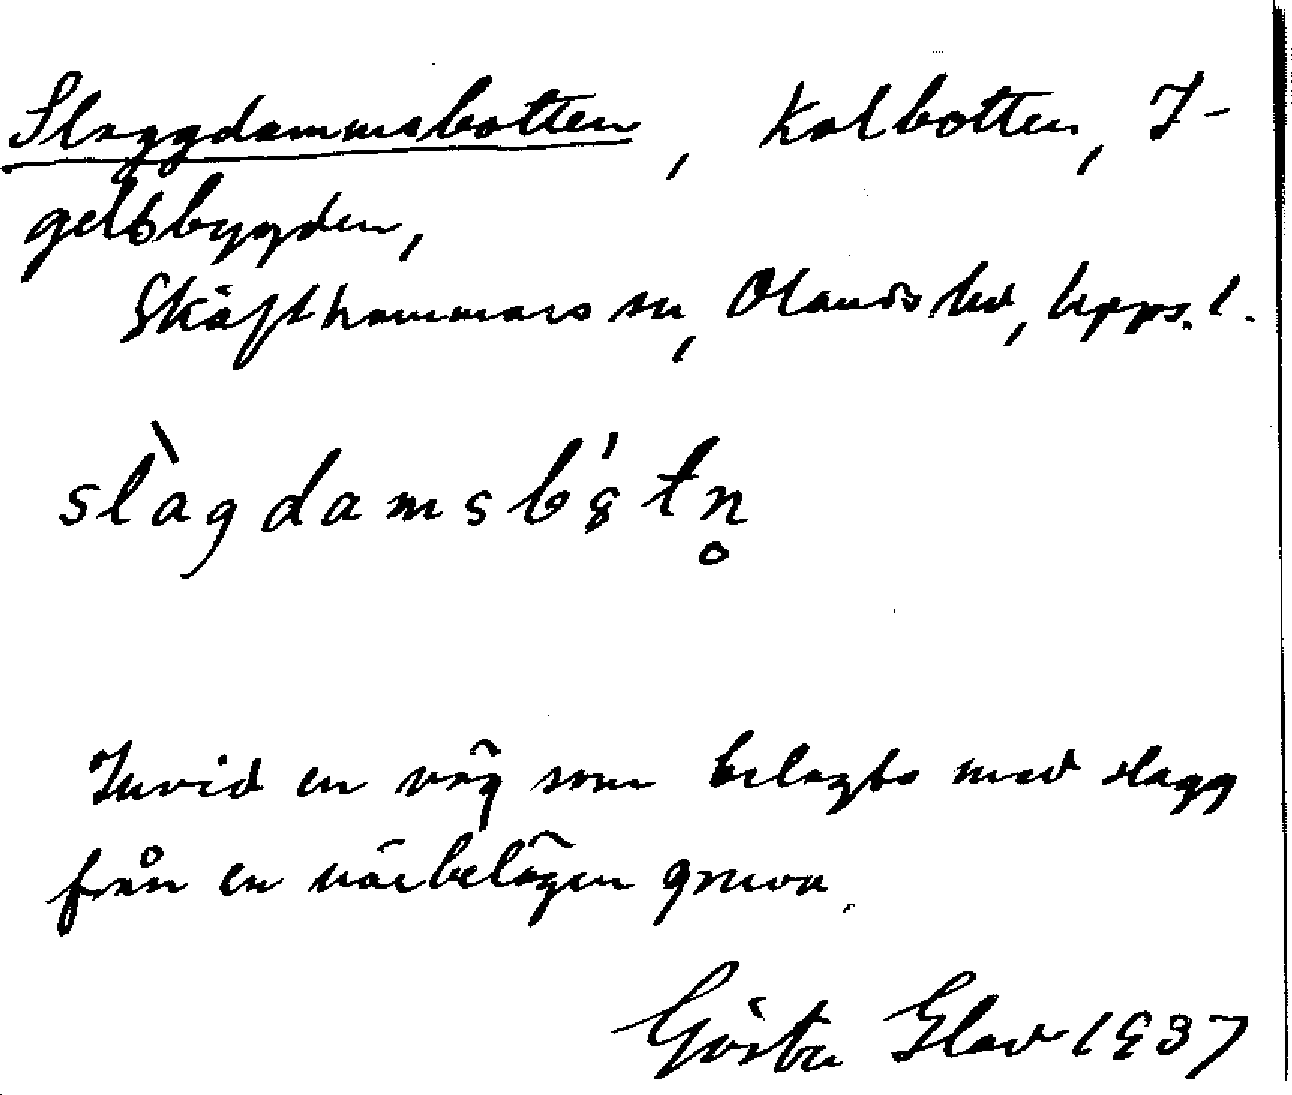 Slaggdammsbotten, Kolbotten, I-
gelsbygden,
Skäfthammars sn, Olands hd, Upps. l.
slàgdamsbó̢tn̥
Invid en väg som belagts med slagg
från en närbelägen gruva.
Gösta Elav 1937